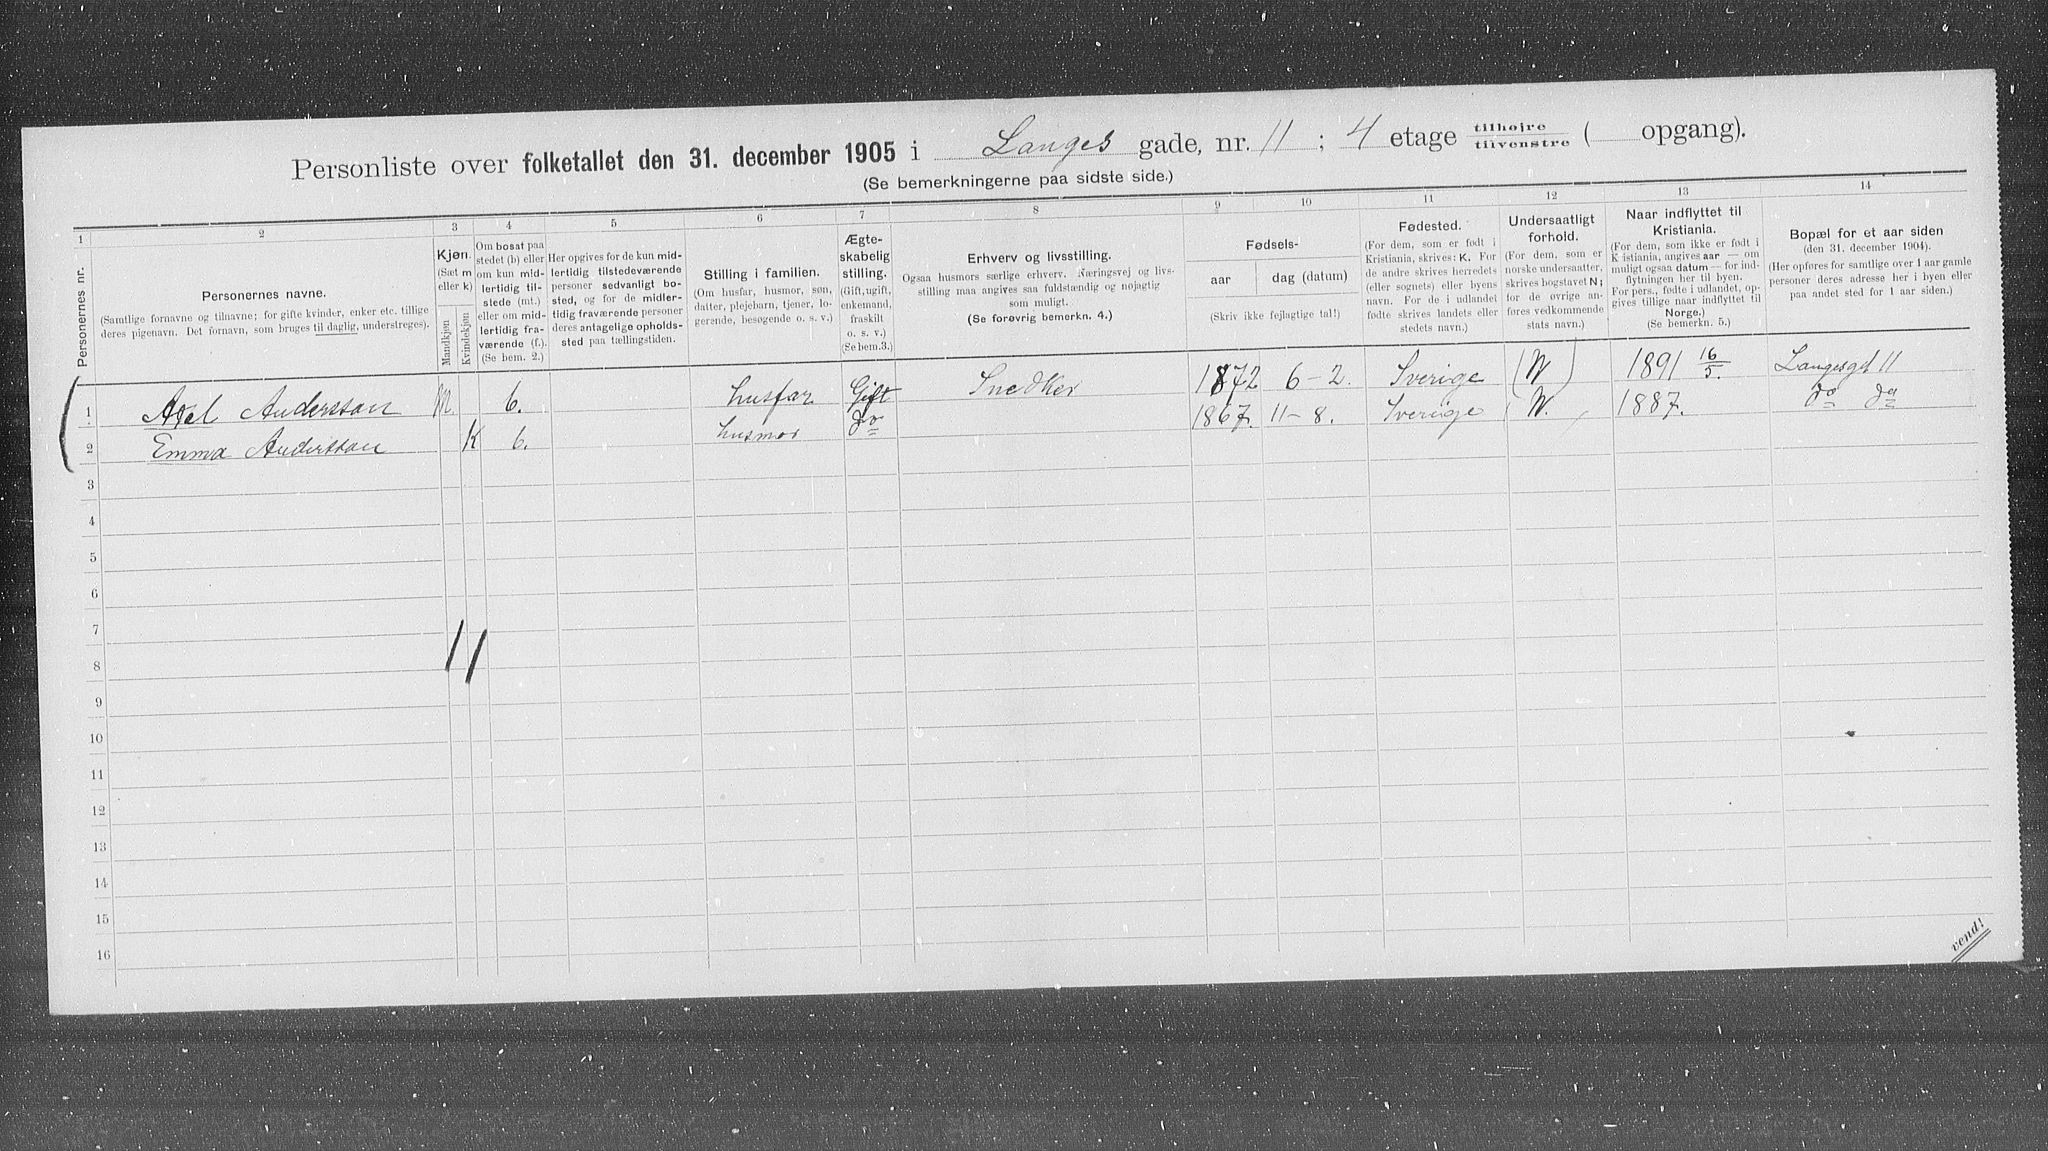 Personliste over folketallet den 31. december 1905 i Langes gade, nr. 11 ; 4 etage tilhøjre tilvenstre ( opgang).
(Se bemerkningerne paa sidste side.)
1 2 3 4 5 6 7 8 9 10 11 12 13 14
Personernes nr.
Personernes navne.
(Samtlige fornavne og tilnavne; for gifte kvinder, enker etc. tillige
deres pigenavn. Det fornavn, som bruges til daglig, understreges).
Kjøn.
(Sæt m
eller k)
Mandkjøn
Kvindekjøn
Om bosat paa
stedet (b) eller
om kun mid-
lertidig til-
stede (mt.)
eller om mid-
lertidig fra-
værende (f.).
(Se bem. 2.)
Her opgives for de kun mid-
lertidig tilstedeværende
personer sedvanligt bo-
sted, og for de midler-
tidig fraværende personer
deres antagelige opholds-
sted paa tællingstiden.
Stilling i familien.
(Om husfar, husmor, søn,
datter, plejebarn, tjener, lo-
gerende, besøgende o. s. v.)
Ægte-
skabelig
stilling.
(Gift, ugift,
enkemand,
fraskilt
o. s. v.)
(Se bem.3.)
Erhverv og livsstilling.
Ogsaa husmors særlige erhverv. Næringsvej og livs-
stilling maa angives saa fuldstændig og nøjagtig
som muligt.
(Se forøvrig bemerkn. 4.)
Fødsels-
aar dag (datum)
(Skriv ikke fejlagtige tal!)
Fødested.
(For dem, som er født i
Kristiania, skrives: K. For
de andre skrives herredets
(eller sognets) eller byens
navn. For de i udlandet
fødte skrives landets eller
stedets navn.)
Undersaatligt
forhold.
(For dem, som er
norske undersaatter,
skrives bogstavet N;
for de øvrige an-
føres vedkommende
stats navn.)
Naar indflyttet til
Kristiania.
(For dem, som ikke er født i
Kristiania, angives aar — om
muligt ogsaa datum — for ind-
flytningen her til byen.
For pers., fødte i udlandet, op-
gives tillige naar indflyttet til
Norge.)
(Se bemerkn. 5.)
Bopæl for et aar siden
(den 31. december 1904).
(Her opføres for samtlige over 1 aar gamle
personer deres adresse her i byen eller
paa andet sted for 1 aar siden.)
1 Axel Andersson M b. husfar Gift Snedker 1872 6-2. Sverige (N) 1891 16/5. Langesgd 11
2 Emma Andersson K b. husmor do 1867. 11-8. Sverige N. 1887. do do
3
4
5
6
7
8
9
10
11
12
13
14
15
16
vend!